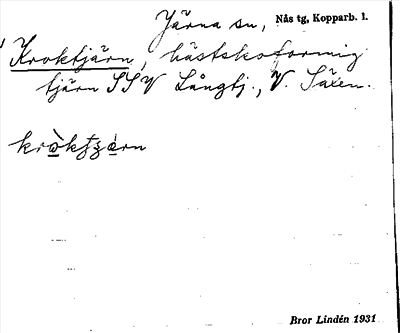 Järna sn, Nås tg, Kopparb. l.
Kroktjärn, hästskoformig
tjärn SSV Långtj., V. Säxen.
Bror Lindén 1931